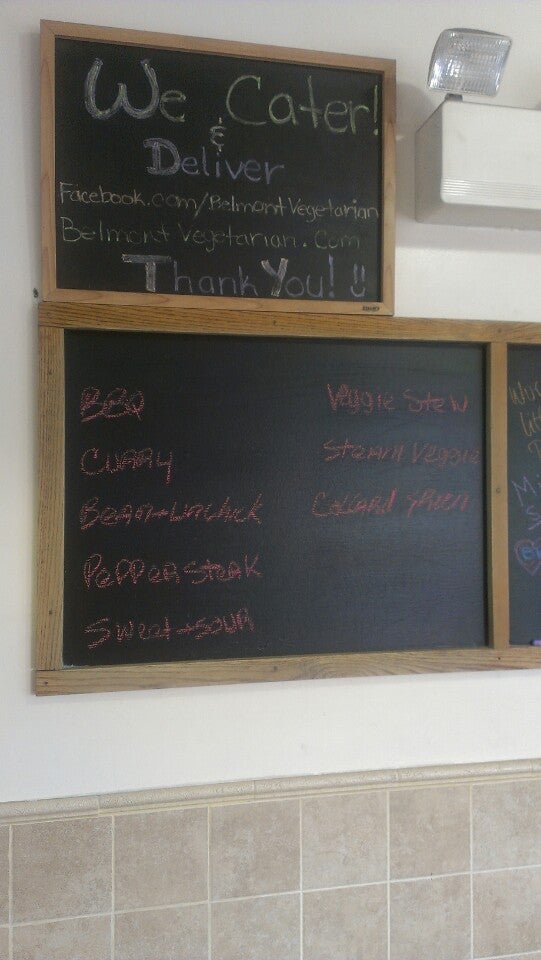 We Cater!
&
Deliver
Facebook.com/BelmontVegetarian
BelmontVegetarian.com
Thank You!
BBQ
Curry
Pepper Steak
Sweet + Sour
Veggie Stew
Steam Veggie
Collard green